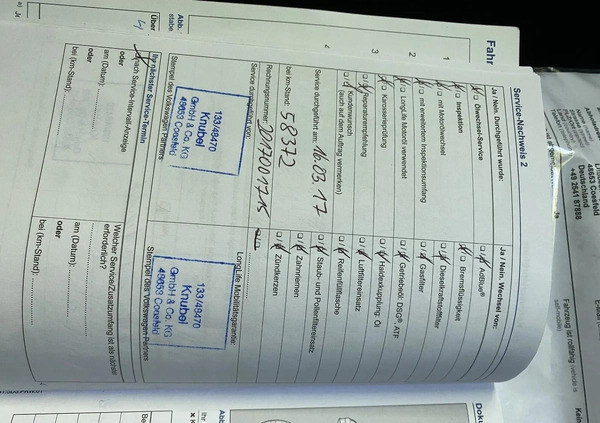 Service-Nachweis 2
Ja / Nein. Durchgeführt wurde:
Ölwechsel-Service
Inspektion
mit Motorölwechsel
mit erweitertem Inspektionsumfang
LongLife Motoröl verwendet
Karosserieprüfung
Reparaturempfehlung
Kundenwunsch
(auch auf dem Auftrag vermerken)
Service durchgeführt am: 16.05.17
bei km-Stand: 58372
Rechnungsnummer:
Service durchgeführt von:
133/48470
Knubel
GmbH & Co. KG
48653 Coesfeld
Stempel des Volkswagen Partners
Ihr nächster Service-Termin
nach Service-Intervall-Anzeige
oder
am (Datum):
oder
bei (km-Stand):
Ja / Nein. Wechsel von:
AdBlue®
Bremsflüssigkeit
Dieselkraftstofffilter
Gasfilter
Getriebeöl: DSG®, ATF
Haldexkupplung: Öl
Luftfiltereinsatz
Reifenfüllflasche
Staub- und Pollenfiltereinsatz
Zahnriemen
Zündkerzen
LongLife Mobilitätsgarantie:
133/48470
Knubel
GmbH & Co. KG
48653 Coesfeld
Stempel des Volkswagen Partners
Welcher Service/Zusatzumfang ist als nächster
erforderlich?
am (Datum):
oder
bei (km-Stand):
Fahr
1
2
3
4
Abb.
Über
48653 Coesfeld
Deutschland
+49 2541 87988
Fahrzeug ist rollfähig (vehicle is
Kein
Doku
Abb
Ihr
Be